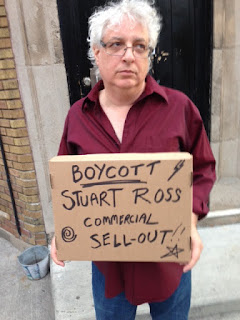 BOYCOTT
STUART ROSS
COMMERCIAL
SELL-OUT!!